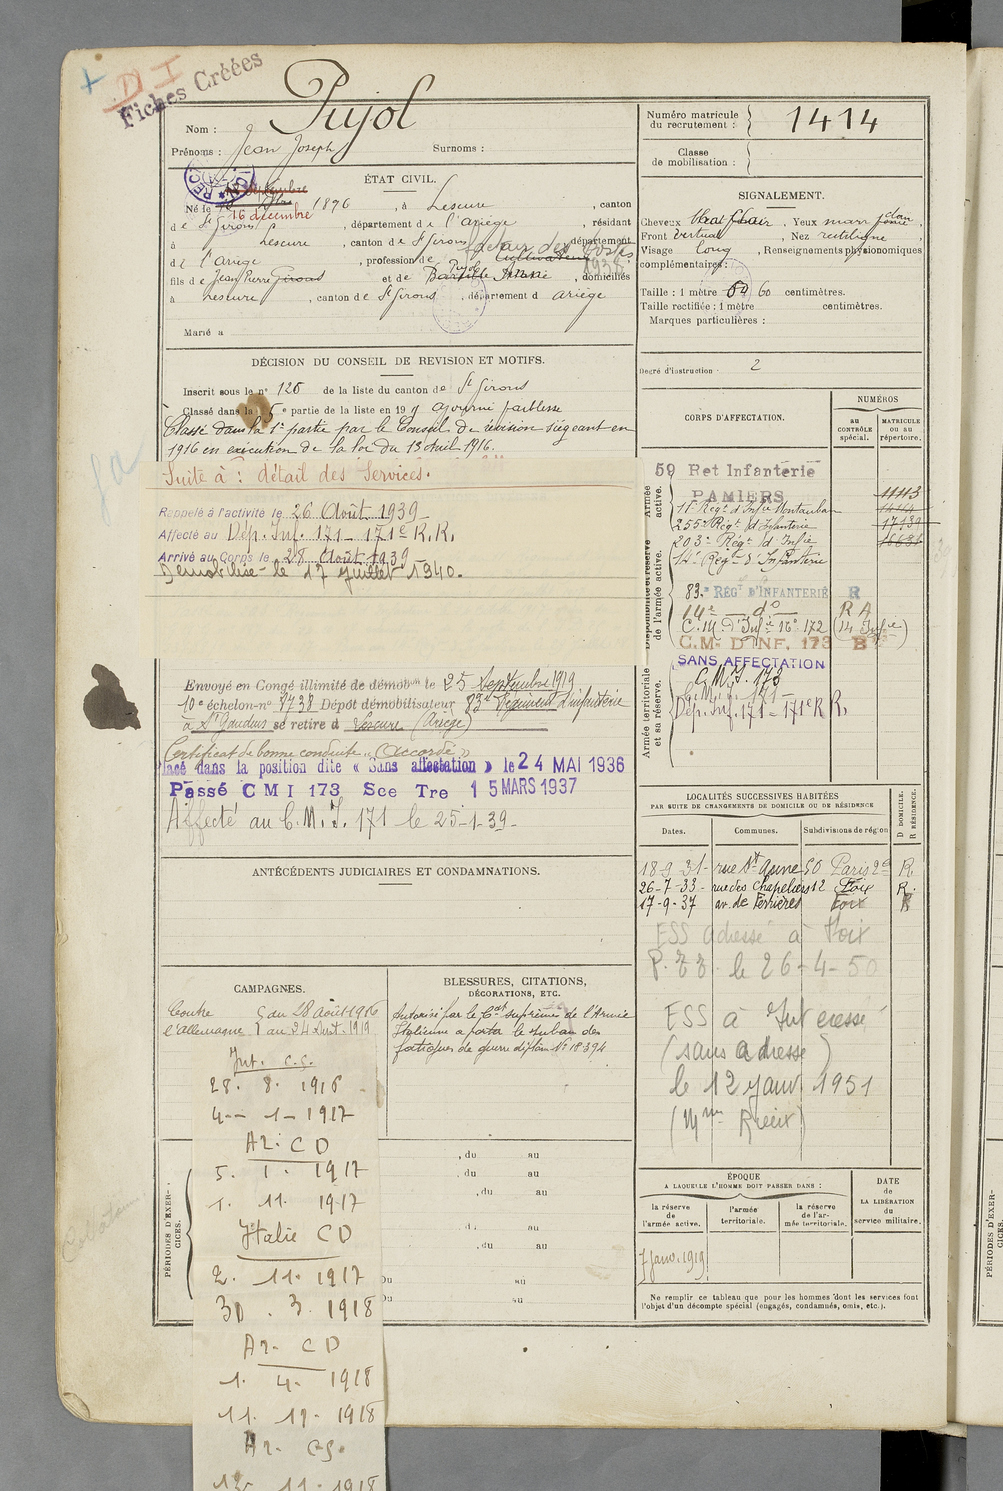 DI
Fiches Créées
Pujol
Nom :
Prénoms : Jean Joseph Surnoms :
Numéro matricule du recrutement : 1414
Classe de mobilisation :
ÉTAT CIVIL.
Né le 1896, à Lescure, canton
16 décembre
de St Girons, département de l'Ariège, résidant
à Lescure, canton de St Girons, département
de l'Ariège, profession de Cultivateur
fils de Jean Pierre et de , domiciliés
à Lescure, canton de St Girons, département d Ariège
Marié à
SIGNALEMENT.
Cheveux , Yeux marron
Front vertical, Nez rectiligne
Visage long, Renseignements physionomiques
complémentaires :
Taille : 1 mètre 60 centimètres.
Taille rectifiée : 1 mètre centimètres.
Marques particulières :
Degré d'instruction 2
DÉCISION DU CONSEIL DE REVISION ET MOTIFS.
Inscrit sous le n° 126 de la liste du canton de St Girons
Classé dans la 5e partie de la liste en 19 ajourné faiblesse
Classé dans la 1e partie par le Conseil de révision siégeant en
1916 en exécution de la loi du 13 Avril 1916.
Suite à : détail des Services.
Rappelé à l'activité le 26 Août 1939
Affecté au Dép. Inf. 171 - 171e R.R.
Arrivé au Corps le 28 Août 1939
Démobilisé le 17 Juillet 1940.
Envoyé en Congé illimité de démobon le 25 Septembre 1919
10e échelon n° 8738 Dépôt démobilisateur 83e Régiment d'infanterie
à St Gaudens se retire à Lescure (Ariège)
Certificat de bonne conduite "Accordé"
lacé dans la position dite « Sans affectation » le 24 MAI 1936
Passé C M I 173 Sce Tre 15 MARS 1937
Affecté au C.M.I. 171 le 25-1-39-
CORPS D'AFFECTATION.
NUMÉROS
au CONTRÔLE spécial.
MATRICULE ou au répertoire.
Armée active.
59 Ret Infanterie
PAMIERS
11e Régt d'Infie Montauban
255e Régt d'Infanterie
203e Régt d'Infie
14e Régt d'Infanterie
1113
1414
17139
Disponibilité et réserve de l'armée active.
83.e RÉGT D'INFANTERIE R
14e — do — R A
C.M. d'Infie N° 172 (14 Infie)
C.M. D'INF. 173 B
Armée territoriale et sa réserve.
SANS AFFECTATION
C.M.I. 173
C.M.I. 171 -
Dép. Inf. 171 - 171e R R.
LOCALITÉS SUCCESSIVES HABITÉES
PAR SUITE DE CHANGEMENTS DE DOMICILE OU DE RÉSIDENCE
Dates. Communes. Subdivisions de région D DOMICILE. R RÉSIDENCE.
18-9-31- rue Ste Anne 50 Paris 2e R
26-7-33- rue des Chapeliers 12 Foix R.
17-9-37 av. de Ferrières Foix R
ESS adressé à Foix
le 26-4-50
ESS à Intéressé
(sans adresse)
le 12 janv 1951
ANTÉCÉDENTS JUDICIAIRES ET CONDAMNATIONS.
CAMPAGNES.
Contre l'Allemagne { du 28 août 1916
au 24 Sept. 1919
Int. C.S.
28. 8. 1916
4 - 1 - 1917
Az. CD
5. 1. 1917
1. 11. 1917
Italie CD
2. 11. 1917
30. 3. 1918
Az. CD
1. 4. 1918
11. 11. 1918
Az. CS.
12. 11. 1918
BLESSURES, CITATIONS,
DÉCORATIONS, ETC.
Autorisé par le Ct suprême de l'Armée
Italienne a porter le ruban des
fatigues de guerre diplôme N° 18394
PÉRIODES D'EXERCICES.
, du au
, du au
, du au
du au
, du au
Du au
Du au
ÉPOQUE
A LAQUELLE L'HOMME DOIT PASSER DANS :
la réserve de l'armée active.
l'armée territoriale.
la réserve de l'armée territoriale.
DATE de LA LIBÉRATION du service militaire.
7 Janv. 1919
Ne remplir ce tableau que pour les hommes dont les services font
l'objet d'un décompte spécial (engagés, condamnés, omis, etc.).
PÉRIODES D'EXERCICES.